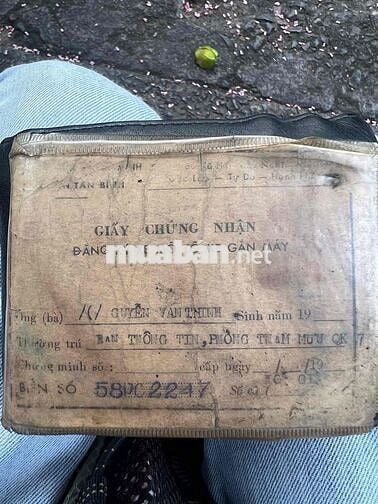 TÂN BÌNH
Độc Lập - Tự Do - Hạnh
GIẤY CHỨNG NHẬN
ĐĂNG GẮN MÁY
muaban.net
Ông (bà) NGUYỄN VĂN THỊNH Sinh năm 19
Thường trú BAN THÔNG TIN, PHÒNG THAM MƯU QK 7
Chứng minh số : cấp ngày / /19
BIỂN SỐ 58UC 2247 Số